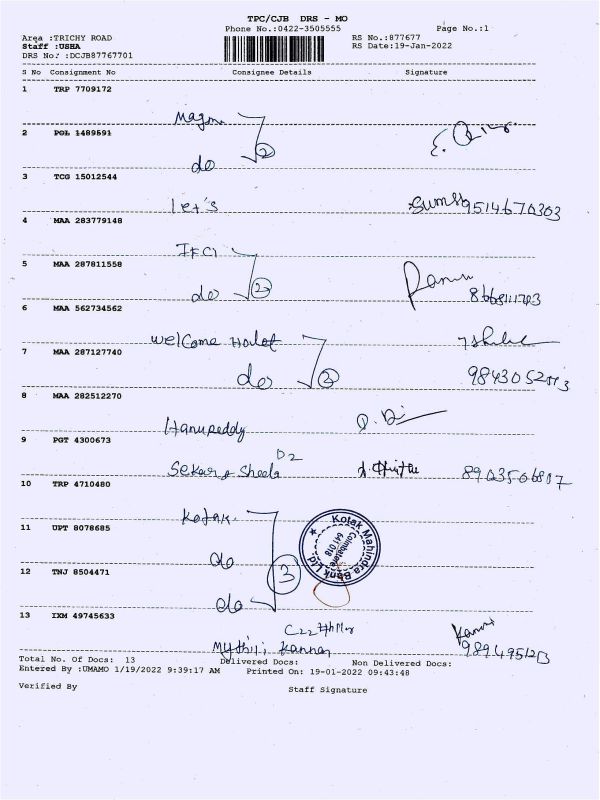 TPC/CJB DRS - MO
Phone No.:0422-3505555 Page No.:1
Area :TRICHY ROAD RS No.:877677
Staff :USHA RS Date:19-Jan-2022
DRS No.: :DCJB87767701
S No Consignment No Consignee Details Signature
1 TRP 7709172
Magma
2 PGL 1489591
do 2
3 TCG 15012544
let's 9514670303
4 MAA 283779148
IFCI
5 MAA 287811558
do 2
6 MAA 562734562
Welcome Hotel
7 MAA 287127740
do 2
8 MAA 282512270
Hanu Reddy
9 PGT 4300673
D2
Sekar & Sheela
10 TRP 4710480
Kotak
11 UPT 8078685
do
Kotak Mahindra Bank Ltd.
Coimbatore
641 018
12 TNJ 8504471
3
do
13 IXM 49745633
Mythili Kannan
Total No. Of Docs: 13 Delivered Docs: Non Delivered Docs:
Entered By :UMAMO 1/19/2022 9:39:17 AM Printed On: 19-01-2022 09:43:48
Verified By Staff Signature